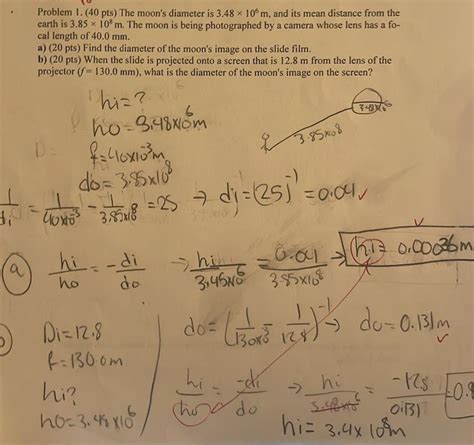 Problem 1. (40 pts) The moon's diameter is 3.48 × 10⁶ m, and its mean distance from the
earth is 3.85 × 10⁸ m. The moon is being photographed by a camera whose lens has a fo-
cal length of 40.0 mm.
a) (20 pts) Find the diameter of the moon's image on the slide film.
b) (20 pts) When the slide is projected onto a screen that is 12.8 m from the lens of the
projector (f = 130.0 mm), what is the diameter of the moon's image on the screen?
hi = ?
ho = 3.48x10⁶m
3.85x10⁸
f = 40x10⁻³m
do = 3.85x10⁸
1/di = 1/40x10⁻³ - 1/3.85x10⁸ = 25 → di = (25)⁻¹ = 0.04 ✓
a) hi/ho = -di/do → hi/3.45x10⁶ = 0.04/3.85x10⁸ → hi = 0.00036m
Di = 12.8
do = (1/130x10⁻³ - 1/12.8)⁻¹ → do = 0.131m ✓
f = 130.0m
hi?
hi/ho = -di/do → hi/3.48x10⁶ = -128/0.131 = 0.9
ho = 3.48x10⁶
hi = 3.4x10⁸m